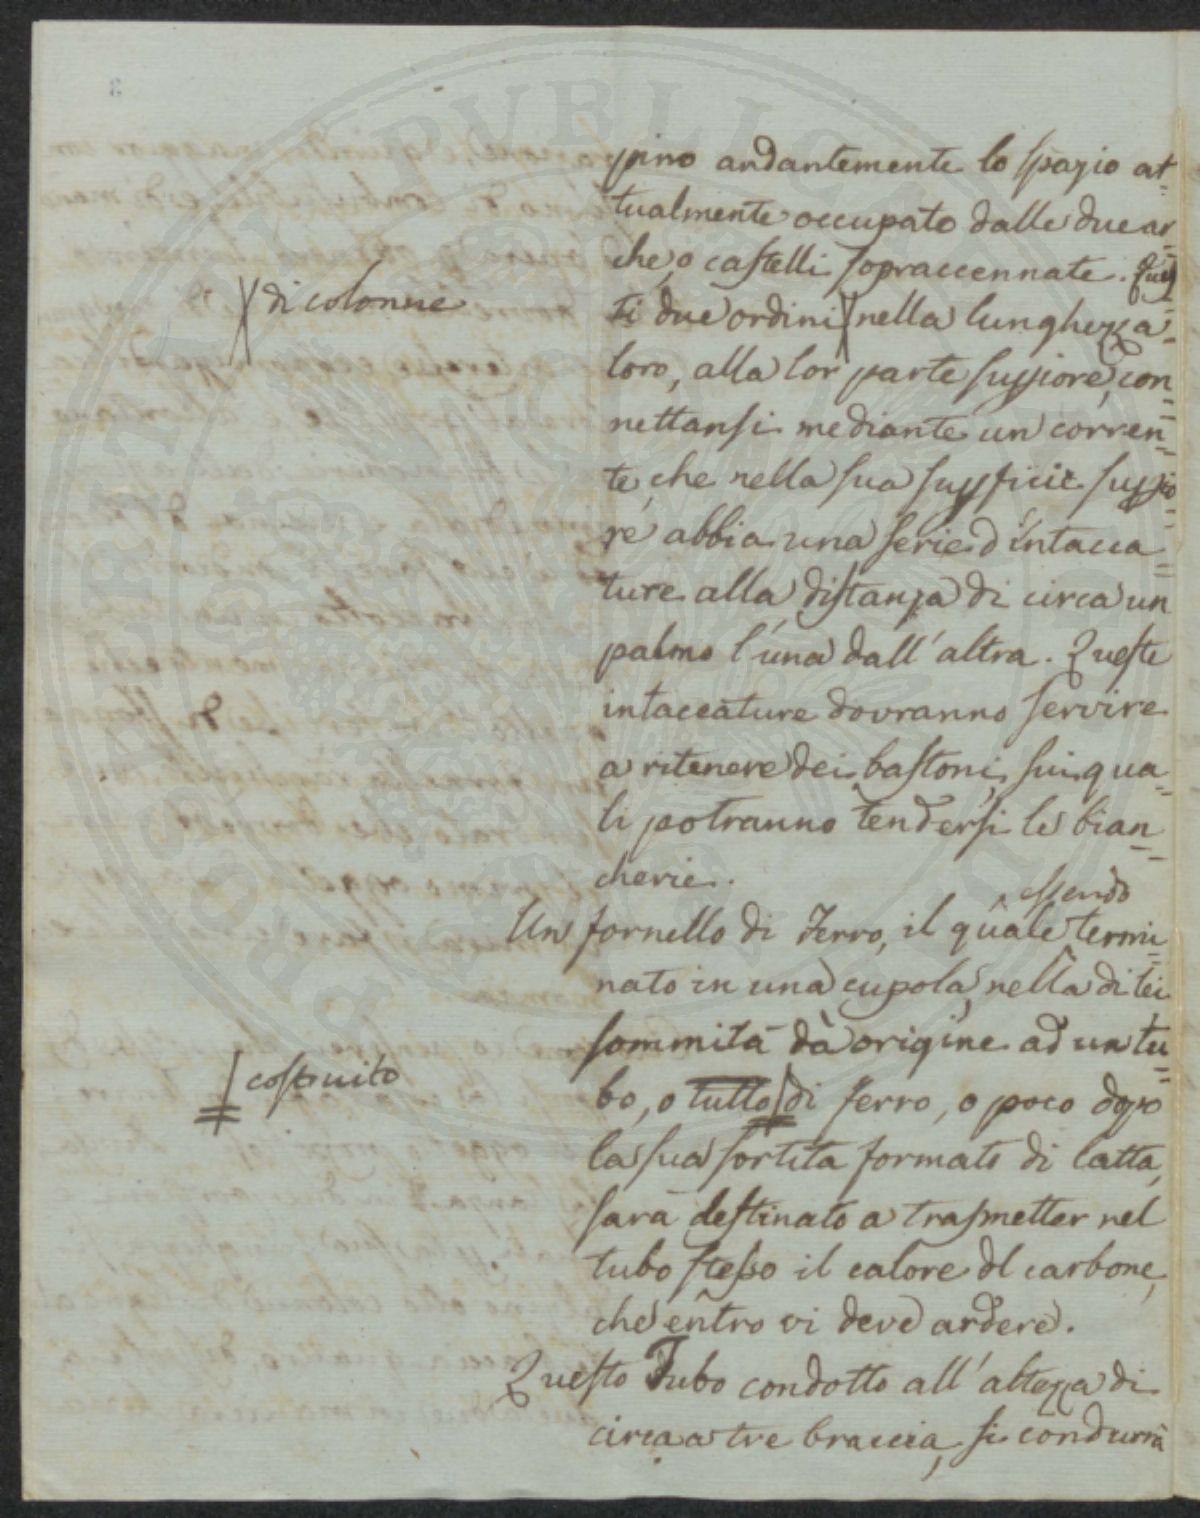 pino andantemente lo spazio at=
tualmente occupato dalle due ar=
che, o castelli sopraccennate. Ques
ti due ordini nella lunghezza
di colonne
loro, alla lor parte suppiore, con=
nettansi mediante un corren=
te, che nella sua suppficie suppio=
re abbia una serie d'intacca=
ture alla distanza di circa un
palmo l'una dall'altra. Queste
intaccature dovranno servire
a ritenere dei bastoni, sui qua=
li potranno tendersi le bian=
cherie.
essendo
Un fornello di Ferro, il quale termi=
nato in una cupola, nella di lei
sommità dà origine ad un tu=
costruito
bo, o tutto di ferro, o poco dopo
la sua sortita formato di latta,
sarà destinato a trasmetter nel
tubo stesso il calore dl carbone,
che entro vi deve ardere.
Questo Tubo condotto all'altezza di
circa a tre braccia, si condurrà